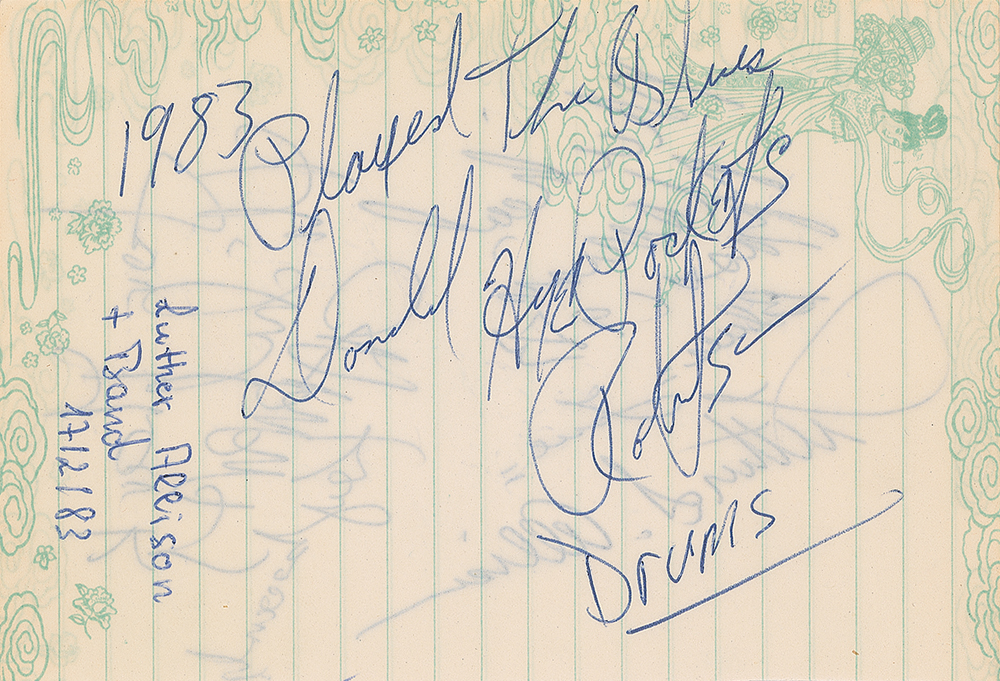 1983 Played The Blues
Donald Hye Pockets
Roberts
Drums
Luther Allison
+ Band
17/2/83